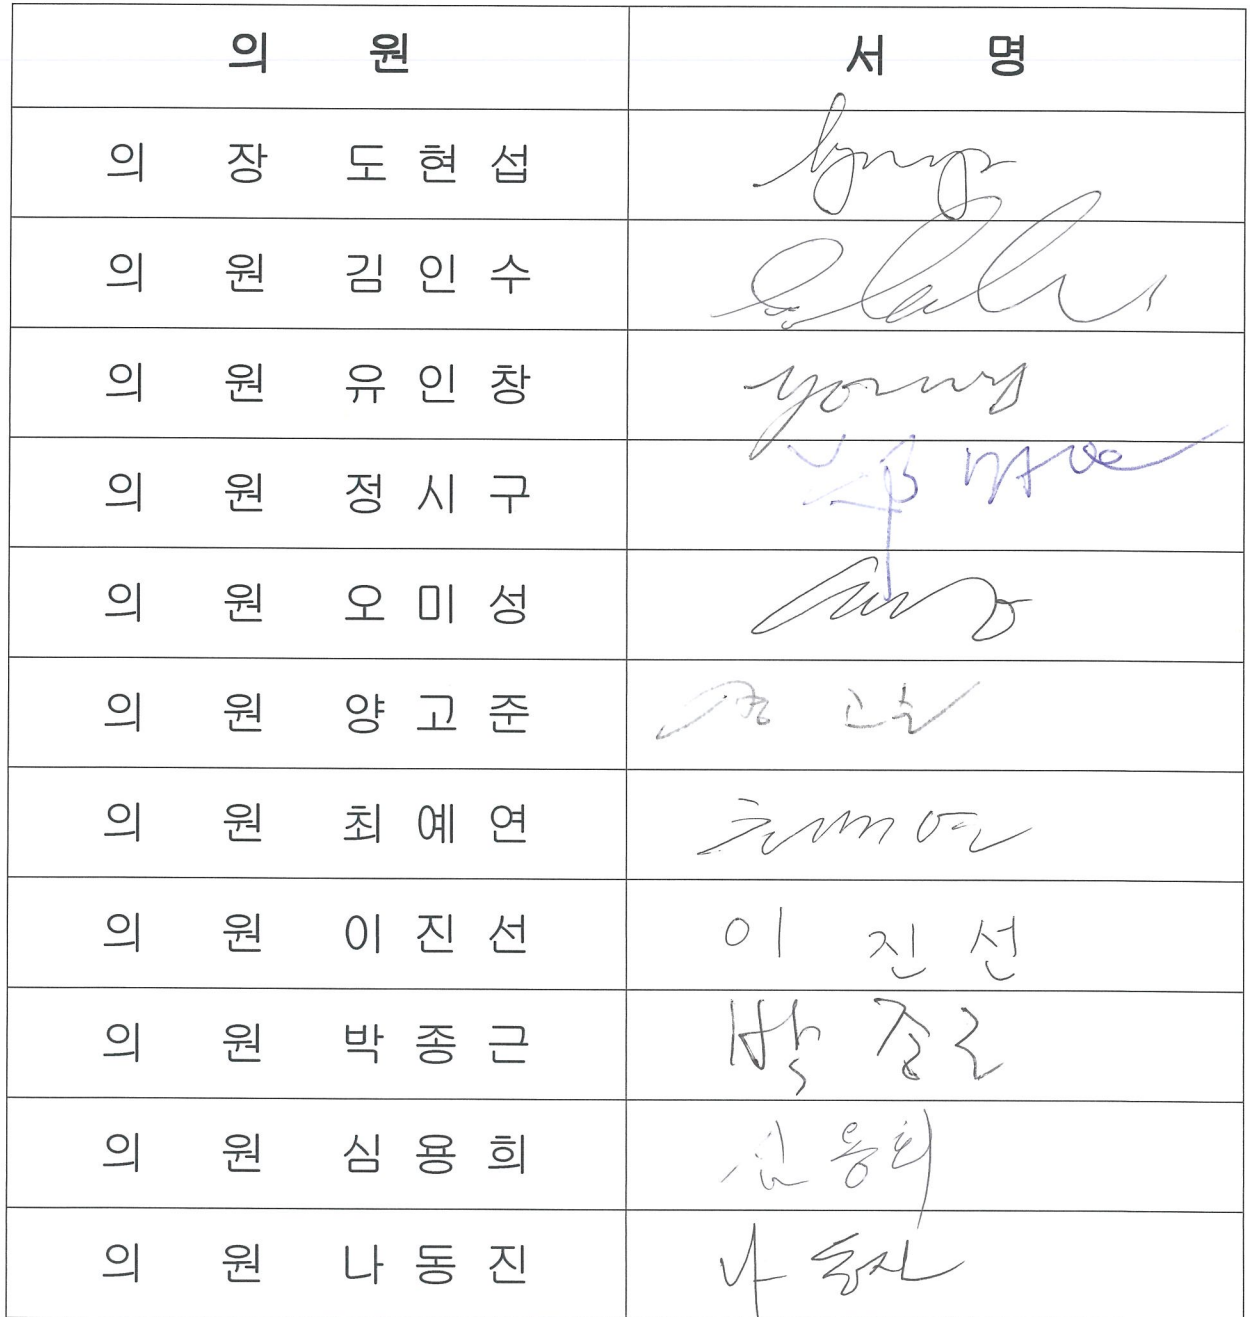 의 원 서 명
의 장 도 현 섭
의 원 김 인 수
의 원 유 인 창
의 원 정 시 구
의 원 오 미 성
의 원 양 고 준
의 원 최 예 연
의 원 이 진 선 이 진 선
의 원 박 종 근 박 종 근
의 원 심 용 희 심 용 희
의 원 나 동 진 나 동 진